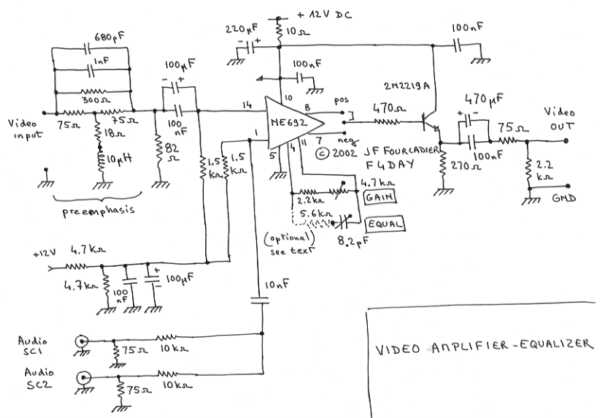 + 12V DC
220µF
10Ω
100nF
680pF
1nF
300Ω
100µF
100nF
2N2219A
Video
input
75Ω
75Ω
18Ω
10µH
100
nF
82
Ω
14
1
10
8
7
5
4
11
NE592
pos
neg
470Ω
470µF
100nF
75Ω
Video
OUT
270Ω
2.2
kΩ
GND
© 2002 JF FOURCADIER
F4DAY
1.5
kΩ
1.5
kΩ
preemphasis
2.2kΩ
4.7kΩ
GAIN
5.6kΩ
EQUAL
8.2pF
(optional)
see text
+12V
4.7kΩ
4.7kΩ
100
nF
100µF
10nF
Audio
SC1
75Ω
10kΩ
Audio
SC2
75Ω
10kΩ
VIDEO AMPLIFIER-EQUALIZER